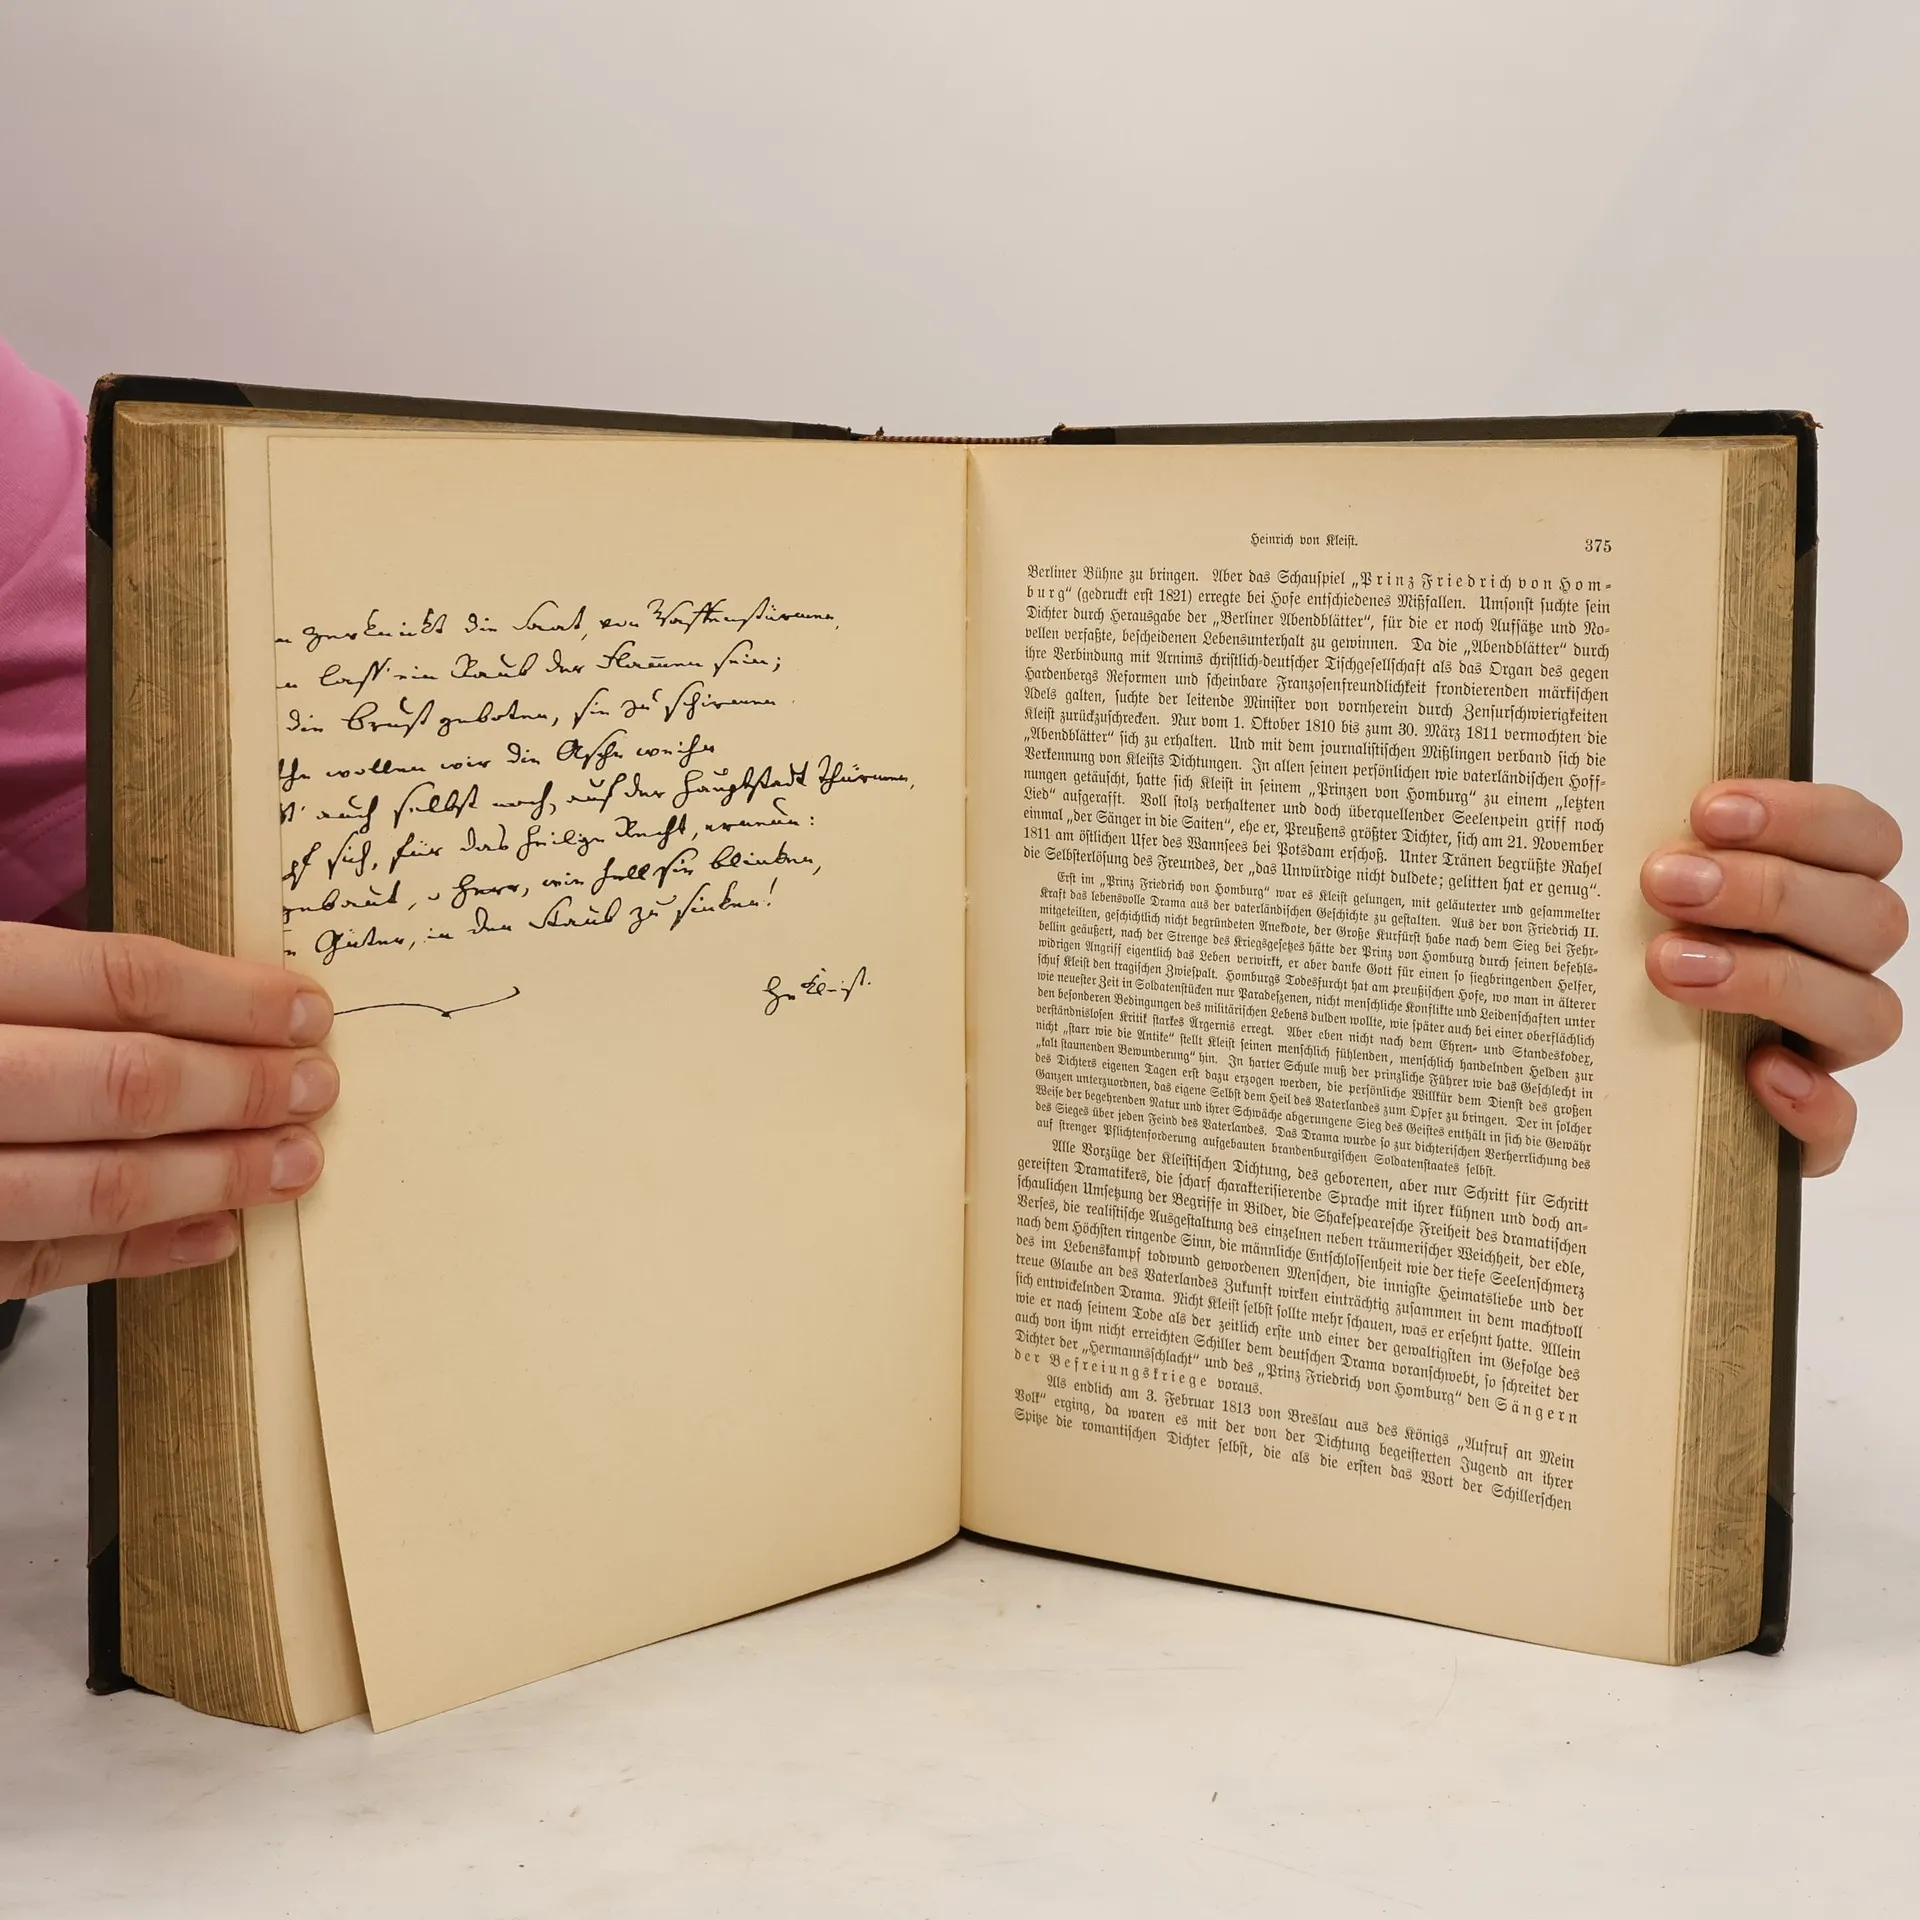 zerknickt die Saat, von Waffenstürmen,
lass' ein Raub der Flammen sein;
die Brust geboten, sie zu schirmen
wollen wir die Asche weihn
auch selbst noch, auf der Hauptstadt Thürmen,
sich, für das heilige Recht, erneun:
gebaut, o Herr, wie hell sie blinken,
Güter, in den Staub zu sinken!
Hr Kleist.
Heinrich von Kleiſt. 375
Berliner Bühne zu bringen. Aber das Schauſpiel „Prinz Friedrich von Hom-
burg“ (gedruckt erſt 1821) erregte bei Hofe entſchiedenes Mißfallen. Umſonſt ſuchte ſein
Dichter durch Herausgabe der „Berliner Abendblätter“, für die er noch Aufſätze und No-
vellen verfaßte, beſcheidenen Lebensunterhalt zu gewinnen. Da die „Abendblätter“ durch
ihre Verbindung mit Arnims chriſtlich-deutſcher Tiſchgeſellſchaft als das Organ des gegen
Hardenbergs Reformen und ſcheinbare Franzoſenfreundlichkeit frondierenden märkiſchen
Adels galten, ſuchte der leitende Miniſter von vornherein durch Zenſurſchwierigkeiten
Kleiſt zurückzuſchrecken. Nur vom 1. Oktober 1810 bis zum 30. März 1811 vermochten die
„Abendblätter“ ſich zu erhalten. Und mit dem journaliſtiſchen Mißlingen verband ſich die
Verkennung von Kleiſts Dichtungen. In allen ſeinen perſönlichen wie vaterländiſchen Hoff-
nungen getäuſcht, hatte ſich Kleiſt in ſeinem „Prinzen von Homburg“ zu einem „letzten
Lied“ aufgerafft. Voll ſtolz verhaltener und doch überquellender Seelenpein griff noch
einmal „der Sänger in die Saiten“, ehe er, Preußens größter Dichter, ſich am 21. November
1811 am öſtlichen Ufer des Wannſees bei Potsdam erſchoß. Unter Tränen begrüßte Rahel
die Selbſterlöſung des Freundes, der „das Unwürdige nicht duldete; gelitten hat er genug“.
Erſt im „Prinz Friedrich von Homburg“ war es Kleiſt gelungen, mit geläuterter und geſammelter
Kraft das lebensvolle Drama aus der vaterländiſchen Geſchichte zu geſtalten. Aus der von Friedrich II.
mitgeteilten, geſchichtlich nicht begründeten Anekdote, der Große Kurfürſt habe nach dem Sieg bei Fehr-
bellin geäußert, nach der Strenge des Kriegsgeſetzes hätte der Prinz von Homburg durch ſeinen befehls-
widrigen Angriff eigentlich das Leben verwirkt, er aber danke Gott für einen ſo ſiegbringenden Helfer,
ſchuf Kleiſt den tragiſchen Zwieſpalt. Homburgs Todesfurcht hat am preußiſchen Hofe, wo man in älterer
wie neueſter Zeit in Soldatenſtücken nur Paradeſzenen, nicht menſchliche Konflikte und Leidenſchaften unter
den beſonderen Bedingungen des militäriſchen Lebens dulden wollte, wie ſpäter auch bei einer oberflächlich
verſtändnisloſen Kritik ſtarkes Ärgernis erregt. Aber eben nicht nach dem Ehren- und Standeskodex,
nicht „ſtarr wie die Antike“ ſtellt Kleiſt ſeinen menſchlich fühlenden, menſchlich handelnden Helden zur
„kalt ſtaunenden Bewunderung“ hin. In harter Schule muß der prinzliche Führer wie das Geſchlecht in
des Dichters eigenen Tagen erſt dazu erzogen werden, die perſönliche Willkür dem Dienſt des großen
Ganzen unterzuordnen, das eigene Selbſt dem Heil des Vaterlandes zum Opfer zu bringen. Der in ſolcher
Weiſe der begehrenden Natur und ihrer Schwäche abgerungene Sieg des Geiſtes enthält in ſich die Gewähr
des Sieges über jeden Feind des Vaterlandes. Das Drama wurde ſo zur dichteriſchen Verherrlichung des
auf ſtrenger Pflichtenforderung aufgebauten brandenburgiſchen Soldatenſtaates ſelbſt.
Alle Vorzüge der Kleiſtiſchen Dichtung, des geborenen, aber nur Schritt für Schritt
gereiften Dramatikers, die ſcharf charakteriſierende Sprache mit ihrer kühnen und doch an-
ſchaulichen Umſetzung der Begriffe in Bilder, die Shakeſpeareſche Freiheit des dramatiſchen
Verſes, die realiſtiſche Ausgeſtaltung des einzelnen neben träumeriſcher Weichheit, der edle,
nach dem Höchſten ringende Sinn, die männliche Entſchloſſenheit wie der tiefe Seelenſchmerz
des im Lebenskampf todwund gewordenen Menſchen, die innigſte Heimatsliebe und der
treue Glaube an des Vaterlandes Zukunft wirken einträchtig zuſammen in dem machtvoll
ſich entwickelnden Drama. Nicht Kleiſt ſelbſt ſollte mehr ſchauen, was er erſehnt hatte. Allein
wie er nach ſeinem Tode als der zeitlich erſte und einer der gewaltigſten im Gefolge des
auch von ihm nicht erreichten Schiller dem deutſchen Drama voranſchwebt, ſo ſchreitet der
Dichter der „Hermannsſchlacht“ und des „Prinz Friedrich von Homburg“ den Sängern
der Befreiungskriege voraus.
Als endlich am 3. Februar 1813 von Breslau aus des Königs „Aufruf an Mein
Volk“ erging, da waren es mit der von der Dichtung begeiſterten Jugend an ihrer
Spitze die romantiſchen Dichter ſelbſt, die als die erſten das Wort der Schillerſchen